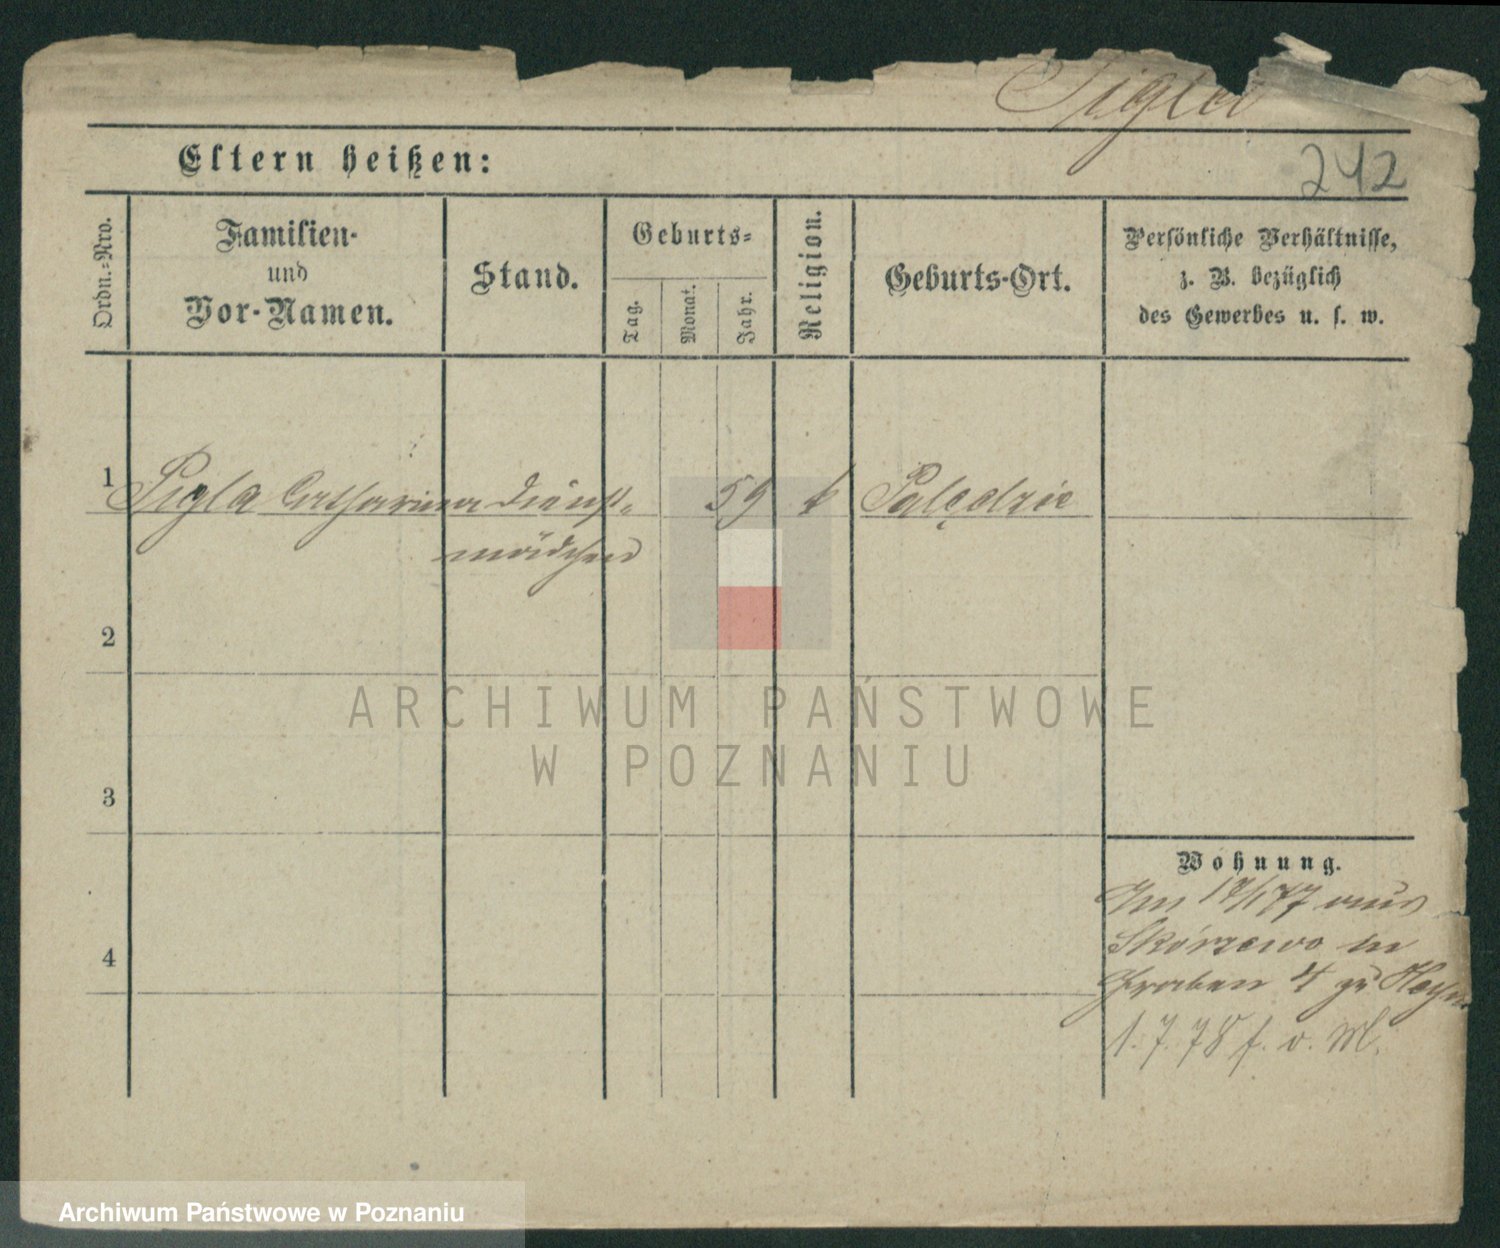 Sigla
242
Eltern heißen:
Ordn.-Nro.
Familien-
und
Vor-Namen.
Stand.
Geburts-
Tag.
Monat.
Jahr.
Religion.
Geburts-Ort.
Persönliche Verhältnisse,
z. B. bezüglich
des Gewerbes u. s. w.
1 Sigla Catharina Dienst- 59 k Palędzie
mädchen
2
ARCHIWUM PAŃSTWOWE
W POZNANIU
3
Wohnung.
77 aus
Skórzewo in
4 Graben 4 zu
1. 7. 78 f. v. M.
Archiwum Państwowe w Poznaniu